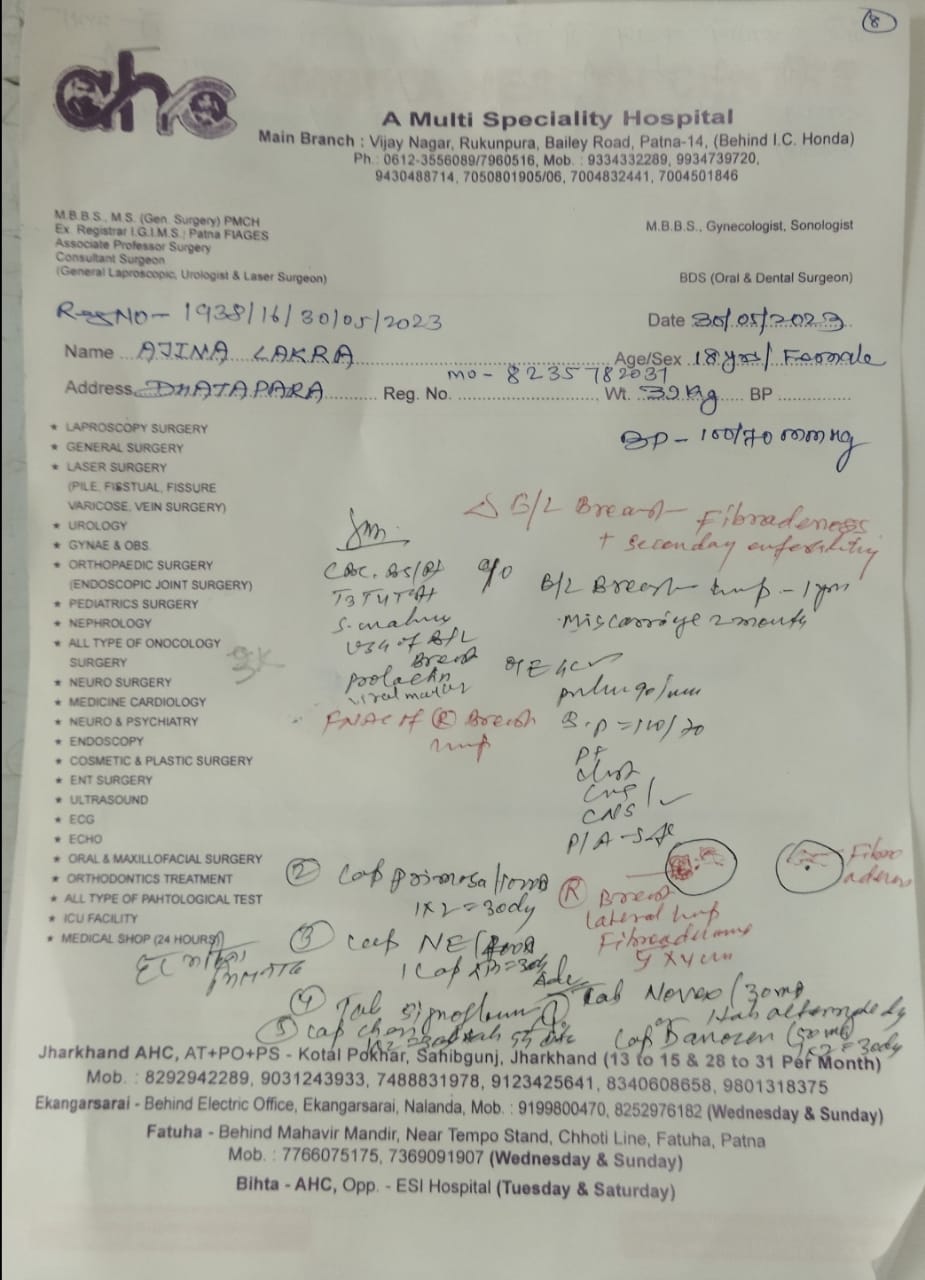 8
ahc
A Multi Speciality Hospital
Main Branch : Vijay Nagar, Rukunpura, Bailey Road, Patna-14, (Behind I.C. Honda)
Ph.: 0612-3556089/7960516, Mob. : 9334332289, 9934739720,
9430488714, 7050801905/06, 7004832441, 7004501846
M.B.B.S., M.S. (Gen. Surgery) PMCH
Ex. Registrar I.G.I.M.S.; Patna FIAGES
Associate Professor Surgery
Consultant Surgeon
(General Laproscopic, Urologist & Laser Surgeon)
M.B.B.S., Gynecologist, Sonologist
BDS (Oral & Dental Surgeon)
Reg NO- 1938/16/30/05/2023
Date 30/05/2023
Name AJINA LAKRA Age/Sex 18 yrs/ Female
mo- 8235782031
Address DHATAPARA Reg. No. Wt. 39 kg BP
BP - 100/70 mmHg
* LAPROSCOPY SURGERY
* GENERAL SURGERY
* LASER SURGERY
(PILE, FISSTUAL, FISSURE
VARICOSE, VEIN SURGERY)
* UROLOGY
* GYNAE & OBS.
* ORTHOPAEDIC SURGERY
(ENDOSCOPIC JOINT SURGERY)
* PEDIATRICS SURGERY
* NEPHROLOGY
* ALL TYPE OF ONOCOLOGY
SURGERY
* NEURO SURGERY
* MEDICINE CARDIOLOGY
* NEURO & PSYCHIATRY
* ENDOSCOPY
* COSMETIC & PLASTIC SURGERY
* ENT SURGERY
* ULTRASOUND
* ECG
* ECHO
* ORAL & MAXILLOFACIAL SURGERY
* ORTHODONTICS TREATMENT
* ALL TYPE OF PAHTOLOGICAL TEST
* ICU FACILITY
* MEDICAL SHOP (24 HOURS)
Δ B/L Breast
+ Seconday
CBC,
T3 T4 TSH
USG of B/L
Breast
prolactin
FNAC of R Breast
c/o B/L Breast lump - 1 yr
Miscarriage 2 months
O/E
B.P = 110/70
Chest
CVS
CNS
P/A - Soft
Fibro
adenos
R Breast
lateral lump
5 x 4 cm
② Cap primosa
1 x 2 = 30dy
③ Cap NE
1 Cap
Adv
① Tab Novex / 30mg
1 tab alternate dy
or
Cap Danozen (50 mg)
1 x 2 = 30dy
④ Tab
⑤ Cap
Jharkhand AHC, AT+PO+PS - Kotal Pokhar, Sahibgunj, Jharkhand (13 to 15 & 28 to 31 Per Month)
Mob. : 8292942289, 9031243933, 7488831978, 9123425641, 8340608658, 9801318375
Ekangarsarai - Behind Electric Office, Ekangarsarai, Nalanda, Mob. : 9199800470, 8252976182 (Wednesday & Sunday)
Fatuha - Behind Mahavir Mandir, Near Tempo Stand, Chhoti Line, Fatuha, Patna
Mob. : 7766075175, 7369091907 (Wednesday & Sunday)
Bihta - AHC, Opp. - ESI Hospital (Tuesday & Saturday)